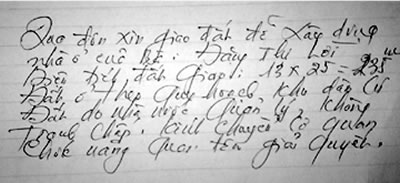 Qua đơn xin giao đất để xây dựng
nhà ở của Bà: Đặng Thị Hồi
Diện tích đất giao: 13 x 25 = 235 m²
Đất ở theo quy hoạch khu dân cư
Đất do nhà nước quản lý, không
tranh chấp. Kính chuyển cơ quan
chức năng quan tâm giải quyết.